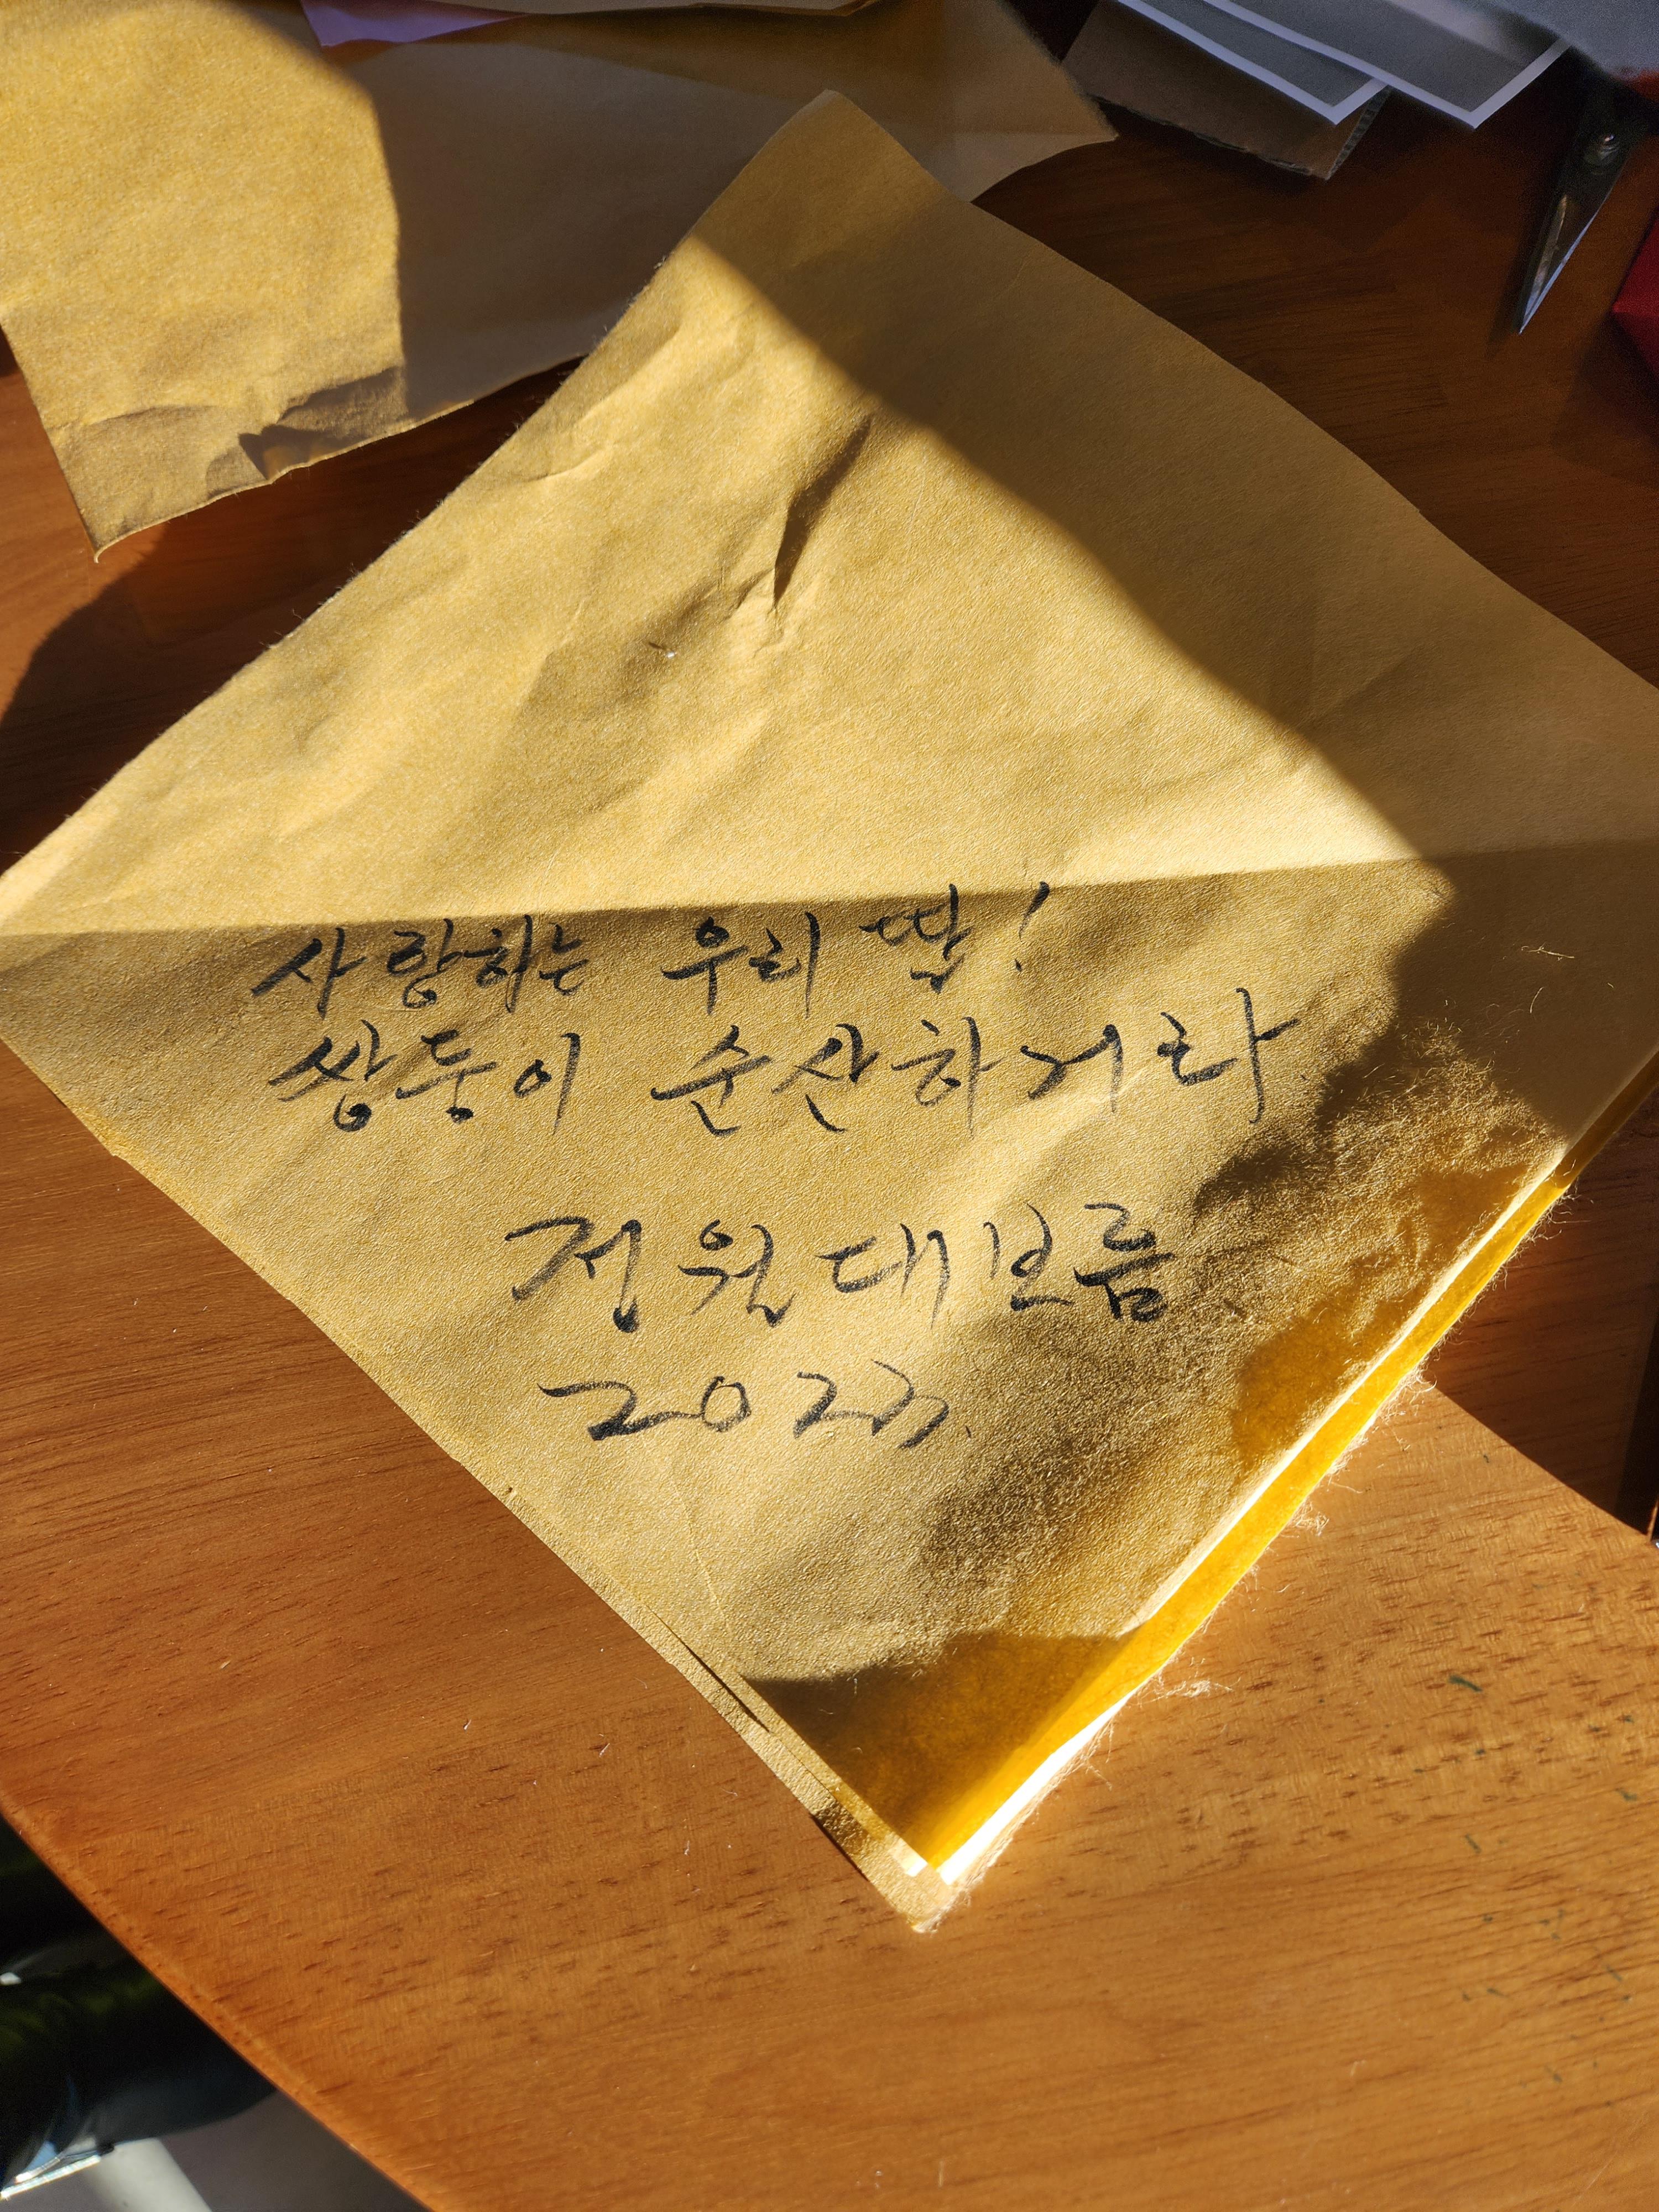 사랑하는 우리 딸!
쌍둥이 순산하거라.
정월대보름
2023.